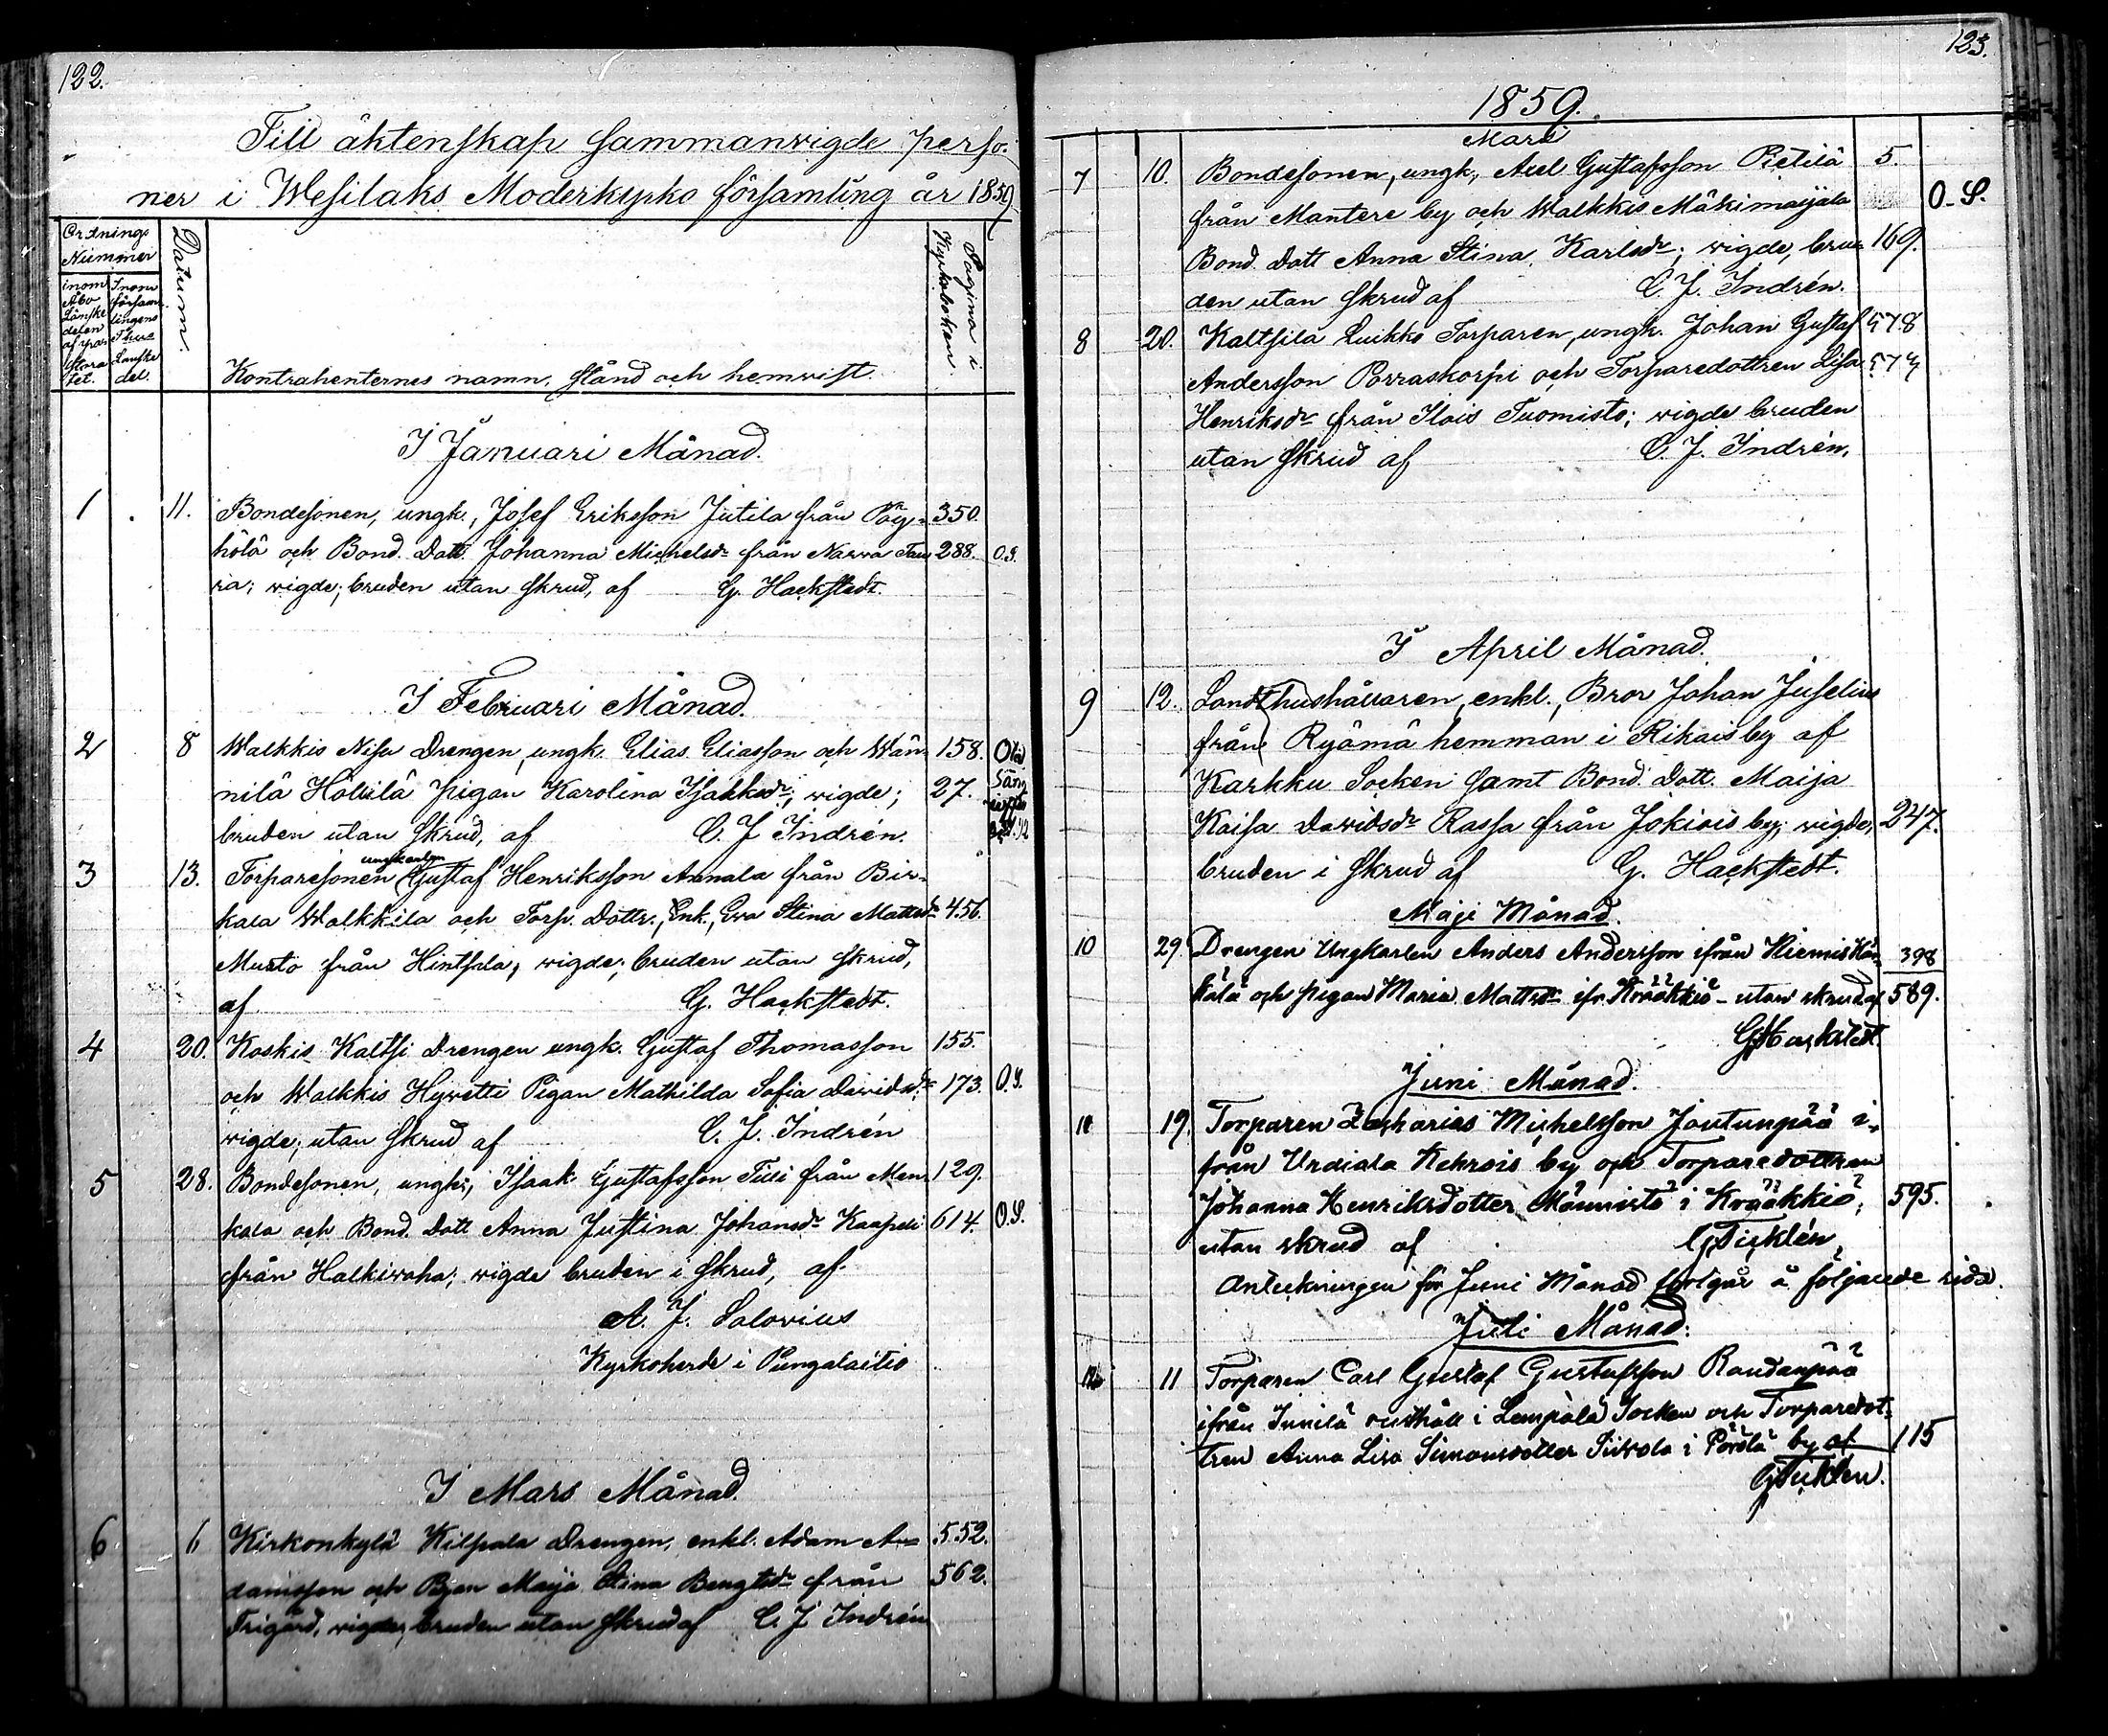 122.
Till äktenskap sammanvigde perso-
ner i Wesilaks Moderkyrko församling år 1859
Ordnings
Nummer
inom
Åbo
Länske
delen
af pas-
stora
tet.
Inom
försam
lingens
Länske
del.
Datum.
Kontrahenternes namn, stånd och hemvist.
Pagina i
Kyrkoboken
I Januari Månad.
1 11. Bondesonen, ungk., Josef Eriksson Jutila från Pöy- 350.
hölä och Bond. Dott. Johanna Michelsdr från Narva Tau 288. O.S.
ria; vigde; bruden utan skrud, af G. Hackstedt.
I Februari Månad.
2 8 Walkkis Nisu Drengen, ungk. Elias Eliasson och Wän- 158.
nilä Hölulä pigan Karolina Isaksdr; vigde; 27.
bruden utan skrud, af C. J. Indrén.
3 13. Torparesonen ungkarlen Gustaf Henriksson Annala från Bir-
kala Walkkila och Torp. Dottr., Enk., Eva Stina Mattsdr 456.
Musto från Hintsala; vigde; bruden utan skrud,
af G. Hackstedt.
4 20. Koskis Kaltsi Drengen ungk. Gustaf Thomasson 155.
och Walkkis Hyvetti Pigan Mathilda Sofia Davidsdr 173. O.S.
vigde; utan skrud af C. J. Indrén
5 28. Bondesonen, ungk., Isaak Gustafsson Tili från Men- 129.
kala och Bond. Dott Anna Justina Johansdr Kaapeli 614. O.S.
från Halkivaha; vigde bruden i skrud, af
A. J. Salovius
Kyrkoherde i Pungalaitio
I Mars Månad.
6 6 Kirkonkylä Kilpala Drengen, enkl. Adam A- 552.
damsson och Pigan Maija Stina Bengtsdr från 562.
Frigård, vigde, bruden utan skrud af C. J. Indrén
123.
1859.
Mars
7 10. Bondesonen, ungk., Axel Gustafsson Pietilä 5.
från Mantere by och Walkkis Mäkimaijala O. S.
Bond. Dott Anna Stina Karlsdr; vigde, bru- 169.
den utan skrud af C. J. Indrén.
8 20. Kaltsila Luikko Torparen, ungk. Johan Gustaf 578
Andersson Porraskorpi och Torparedottren Lisa 574
Henriksdr från Ilois Tuomisto; vigde bruden
utan skrud af C. J. Indrén.
I April Månad.
9 12. Landthushållaren, enkl., Bror Johan Juselius
från Ryömä hemman i Rikais by af
Karkku Socken samt Bond. Dott. Maija
Kaisa Davidsdr Rassa från Jokiois by; vigde, 247.
bruden i skrud af G. Hackstedt.
Maji Månad.
10 29. Drengen Ungkarlen Anders Andersson ifrån Niemis 398
och pigan Maria Mattsdr ifr. Krääkkiö - utan skrud af 589.
G Hackstedt.
Juni Månad.
11 19. Torparen Zacharias Michelsson Joutunpää i-
från Urdiala Kehrois by och Torparedottren
Johanna Henriksdotter Männistö i Krääkkiö; 595.
utan skrud af G Ticklén
Anteckningen för Juni Månad fortgår å följande sida.
Juli Månad.
12 11 Torparen Carl Gustaf Gustafsson Raudanpää
ifrån Innilä rusthåll i Lempälä Socken och Torparedot-
tren Anna Lisa Simonsdotter Siivola i Pörölä by af 115
G Ticklen.